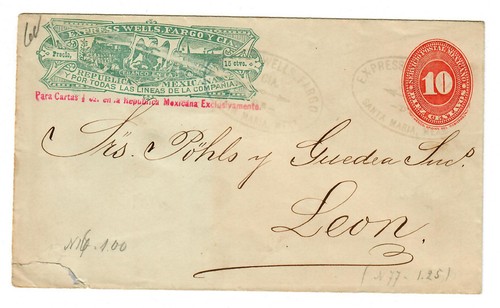 EXPRESS WELLS, FARGO Y CA.
Precio, 15 ctvs.
REPUBLICA MEXICANA
Y POR TODAS LAS LINEAS DE LA COMPAÑIA
Para Cartas y en la Republica Mexicana Exclusivamente.
WELLS FARGO
EXPRESS
SANTA MARIA
SERVICIO POSTAL MEXICANO
10
DIEZ CENTAVOS
Srs. Pöhls y Guedea Suc.
Leon.
1.00
1.25)